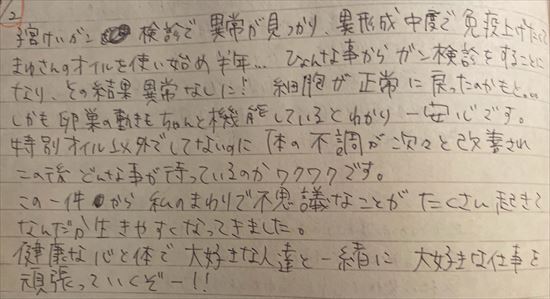 2
子宮けいがん 検診で 異常が見つかり、異形成 中度で 免疫上げたくて
まゆさんのオイルを使い始め半年… ひょんな事から ガン検診をすることに
なり、その結果 異常なしに! 細胞が 正常に 戻ったのかもと。。
しかも 卵巣の動きも ちゃんと機能しているとわかり 一安心です。
特別オイル以外でしてないのに 体の 不調が 次々と 改善され
この後 どんな事が 待っているのか ワクワクです。
この一件 から 私のまわりで不思議なことが たくさい 起きて
なんだか 生きやすくなってきました。
健康な心と体で 大好きな人達と一緒に 大好きな仕事を
頑張っていくぞー!!